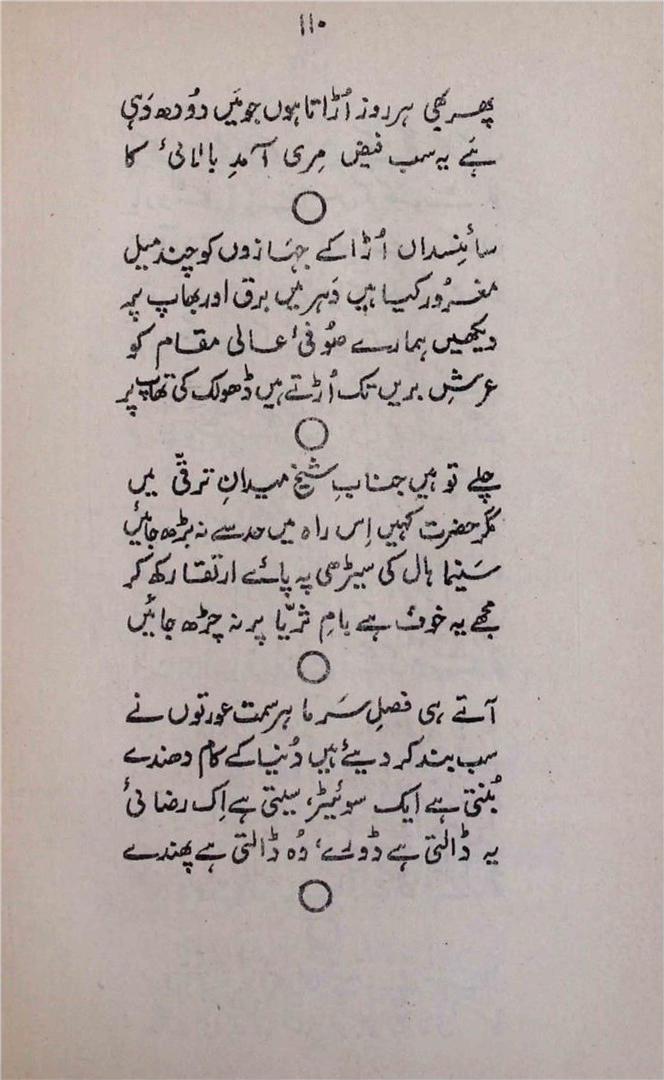 ۱۱۰
پھر بھی ہر روز اُڑاتا ہوں جو مَیں دُودھ دَہی
ہَے یہ سب فیض مِری آمدِ بالائی ٔ کا
سائنسداں اُڑا کے جہَازوں کو چند میل
مغرُور کیا ہیں دَہر میں برق اور بھاپ پہ
دیکھیں ہمارے صُوفی ٔ عالی مقام کو
عرشِ بریں تک اُڑتے ہیں ڈھولک کی تھاپ پر
چلے تو ہیں جنابِ شیخ میدانِ ترقّی میں
مگر حضرت کہیں اِس راہ میں حد سے نہ بڑھ جائیں
سَنیما ہال کی سیڑھی پہ پائے ارتقا رکھ کر
مجھے یہ خوف ہے بامِ ثریّا پر نہ چڑھ جائیں
آتے ہی فصلِ سَرما ہر سمت عورتوں نے
سب بند کر دیئے ہیں دُنیا کے کام دھندے
بُنتی ہے ایک سوئیٹر، سیتی ہے اِک رضائی
یہ ڈالتی ہے ڈورے، وُہ ڈالتی ہے پھندے